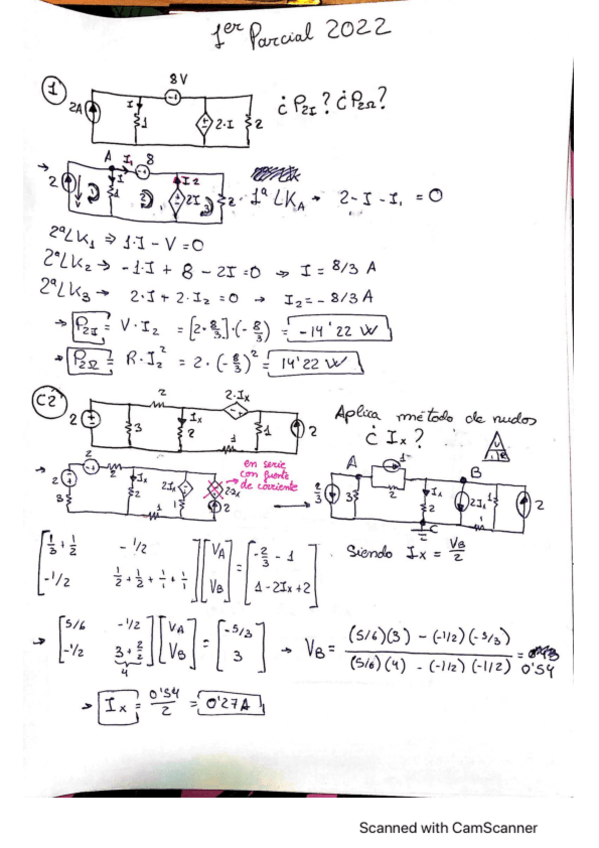 1er Parcial 2022
1
8V
2A
I
1
2·I
2
¿P2I? ¿P2Ω?
A
I1
8
2
I
1
I2
2I
2
V
1ª LKA → 2 - I - I1 = 0
2ª LK1 ⇒ 1·I - V = 0
2ª LK2 → -1·I + 8 - 2I = 0 ⇒ I = 8/3 A
2ª LK3 → 2·I + 2·I2 = 0 → I2 = -8/3 A
→ P2I = V·I2 = [2·8/3]·(-8/3) = -14'22 W
→ P2Ω = R·I2² = 2·(-8/3)² = 14'22 W
C2
2
2·Ix
2
3
Ix
2
1
1
2
Aplica método de nudos
¿Ix?
en serie
con fuente
de corriente
A
1
B
2/3
3
2
Ix
2
2Ix
1
2
C
[1/3+1/2 -1/2
-1/2 1/2+1/2+1/1+1/1] [VA
VB] = [-2/3 - 1
1-2Ix+2]
Siendo Ix = VB/2
→ [5/6 -1/2
-1/2 3+2/2] [VA
VB] = [-5/3
3]
4
→ VB = (5/6)(3) - (-1/2)(-5/3) / (5/6)(4) - (-1/2)(-1/2) = 0'54
→ Ix = 0'54/2 = 0'27A
Scanned with CamScanner